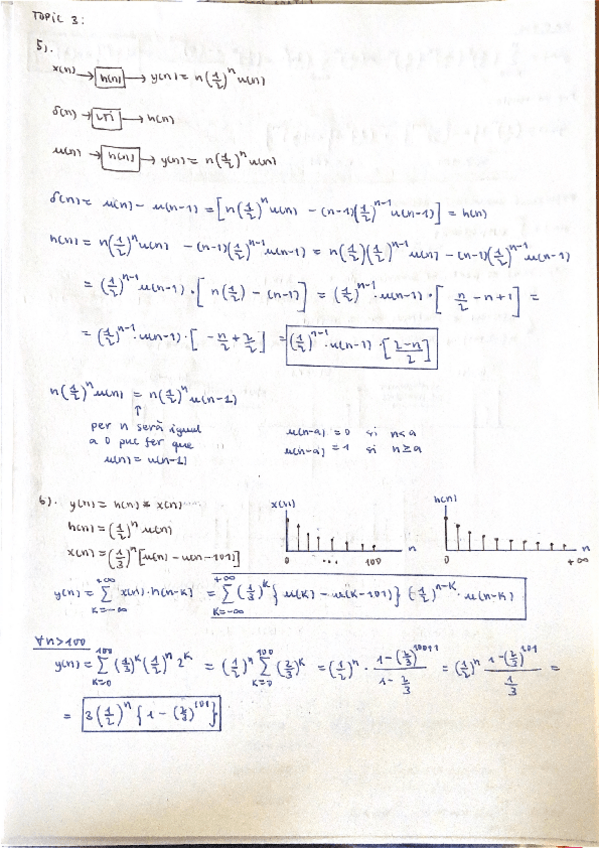 TOPIC 3:
5).
x(n) → h(n) → y(n) = n(1/2)^n u(n)
δ(n) → → h(n)
u(n) → h(n) → y(n) = n(1/2)^n u(n)
δ(n) = u(n) - u(n-1) = [n(1/2)^n u(n) - (n-1)(1/2)^{n-1} u(n-1)] = h(n)
h(n) = n(1/2)^n u(n) - (n-1)(1/2)^{n-1} u(n-1) = n(1/2)(1/2)^{n-1} u(n) - (n-1)(1/2)^{n-1} u(n-1)
= (1/2)^{n-1} u(n-1) · [n(1/2) - (n-1)] = (1/2)^{n-1} · u(n-1) · [n/2 - n + 1] =
= (1/2)^{n-1} · u(n-1) · [-n/2 + 2/2] = (1/2)^{n-1} · u(n-1) · [2-n/2]
n(1/2)^n u(n) = n(1/2)^n u(n-1)
↑
per n serà igual
a 0 puc fer que
u(n) = u(n-1)
u(n-a) = 0 si n<a
u(n-a) = 1 si n≥a
6). y(n) = h(n) * x(n)
h(n) = (1/2)^n u(n)
x(n) = (1/3)^n [u(n) - u(n-101)]
x(n)
0 100 n
h(n)
0 n +∞
y(n) = Σ_{k=-∞}^{+∞} x(n) · h(n-k) = Σ_{k=-∞}^{+∞} (1/3)^k {u(k) - u(k-101)} (1/2)^{n-k} · u(n-k)
∀n>100
y(n) = Σ_{k=0}^{100} (1/3)^k (1/2)^n 2^k = (1/2)^n Σ_{k=0}^{100} (2/3)^k = (1/2)^n · 1-(2/3)^{100+1} / 1-2/3 = (1/2)^n 1-(2/3)^{101} / 1/3 =
= 3(1/2)^n {1 - (2/3)^{101}}